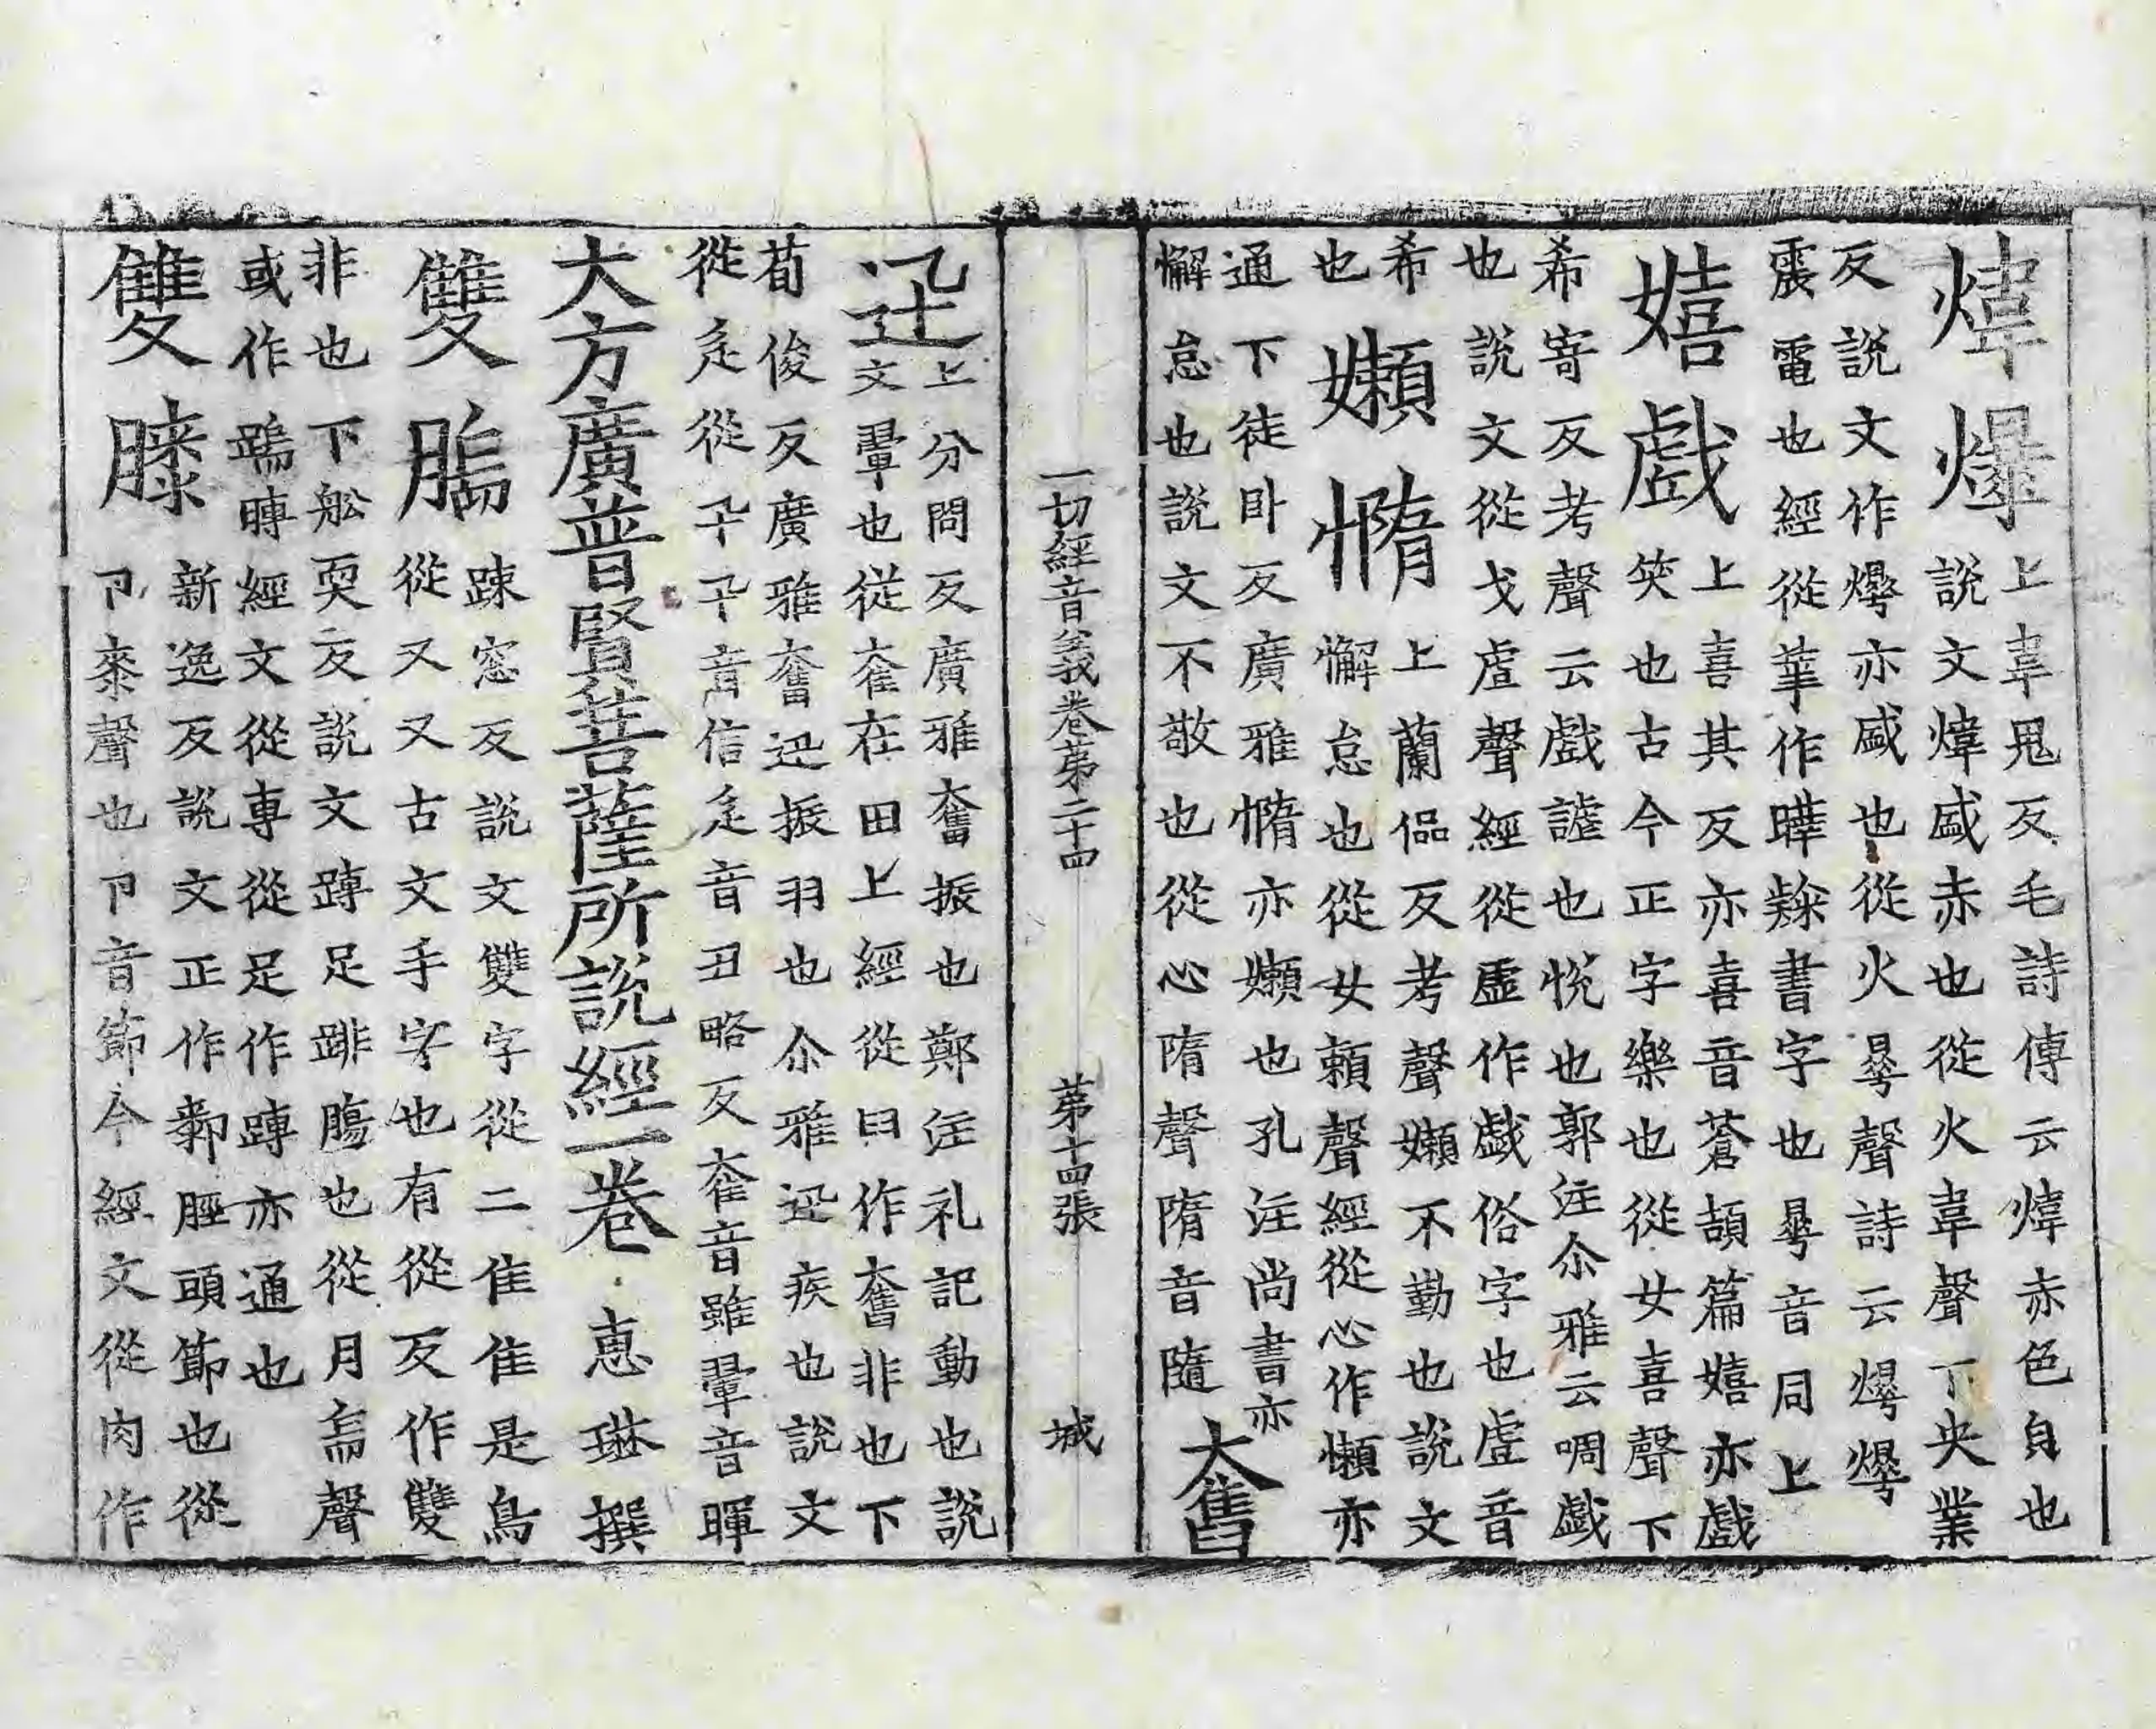 煒爗
上韋鬼反毛詩傳云煒赤色皃也
說文煒盛赤也從火韋聲下炎業
反說文作爗亦盛也從火㬜聲詩云爗爗
震電也經從華作曄隸書字也㬜音同上
嬉戲
上喜其反亦喜音蒼頡篇嬉亦戲
笑也古今正字樂也從女喜聲下
希寄反考聲云戲謔也悅也郭注尒雅云啁戲
也說文從戈䖒聲經從虛作戱俗字也䖒音
希
也
嬾惰
上蘭侃反考聲嬾不勤也說文
懈怠也從女賴聲經從心作懶亦
通下徒卧反廣雅惰亦嬾也孔注尚書亦
懈怠也說文不敬也從心隋聲隋音隨
奮
一切經音義卷第二十四
第十四張
城
迅
上分問反廣雅奮振也鄭注礼記動也說
文翬也從奞在田上經從臼作奮非也下
荀俊反廣雅奮迅振羽也尒雅迅疾也說文
從辵從卂卂音信辵音丑略反奞音雖翬音暉
大方廣普賢菩薩所說經一卷 惠琳撰
雙𦟛
踈窓反說文雙字從二隹隹是鳥
從又又古文手字也有從反作雙
非也下船耎反說文蹲足跰腸也從月耑聲
或作踹䏝經文從專從足作蹲亦通也
雙膝
新逸反說文正作厀脛頭節也從
卪桼聲也卪音節今經文從肉作